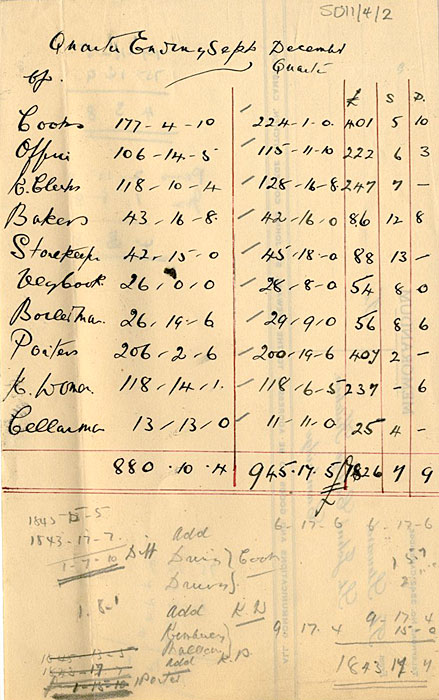 SD11/4/2
Quarter Ending Sept December
Quarter
£ S D.
Cooks 177-4-10 224-1-0 401 5 10
Office 106-14-5 115-11-10 222 6 3
K. Clerks 118-10-4 128-16-8 247 7 -
Bakers 43-16-8 42-16-0 86 12 8
Storekeeper 42-15-0 45-18-0 88 13 -
Vegcook 26-0-0 28-8-0 54 8 0
Boilerman 26-19-6 29-9-0 56 8 6
Porters 206-2-6 200-19-6 407 2 -
K. Woman 118-14-1 118-6-5 237 - 6
Cellarman 13-13-0 11-11-0 25 4 -
880-10-4 945-17-5 1826 7 9
£
1843-15-5
1843-17-7 add 6-17-6 6-17-6
1-7-10 Diff Cook
1-8-1 add K.P.
9-17-4 9-17-4
15-0
add K.P.
1-15-10 Porter 1843 17 4